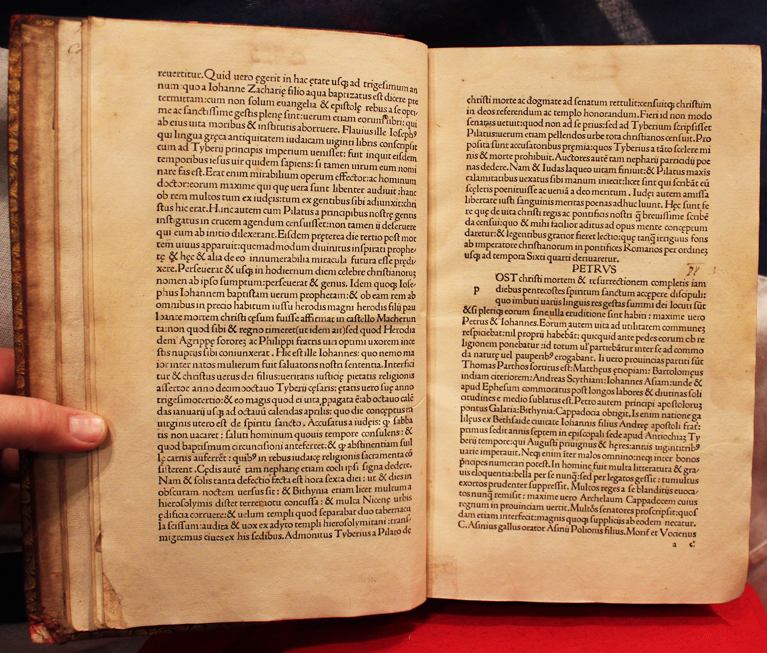 reuertitur. Quid uero egerit in hac ętate usq; ad trigesimum an
num: quo a Iohanne Zacharię filio aqua baptizatus est dicere pre
termittam: cum non solum euangelia & epistolę rebus a se opti
me ac sanctissime gestis plenę sint: uerum etiam eorum libri; qui
ab eius uita moribus & institutis aborruere. Flauius ille Ioseph9
qui lingua gręca antiquitatem iudaicam uiginti libris conscripsit
cum ad Tyberii principis imperium uenisset: fuit inquit eisdem
temporibus iesus uir quidem sapiens: si tamen uirum eum nomi
nare fas est. Erat enim mirabilium operum effector: ac hominum
doctor: eorum maxime qui quę uera sunt libenter audiūt: hanc
ob rem multos tum ex iudęis: tum ex gentibus sibi adiūxit: chri
stus hic erat. Hunc autem cum Pilatus a principibus nostrę gentis
instigatus in crucem agendum censuisset: non tamen ii deseruere
qui eum ab initio dilexerant. Eisdem pręterea die tertio post mor
tem uiuus apparuit: quemadmodum diuinitus inspirati prophe
tę & hęc & alia de eo innumerabilia miracula futura esse prędi
xere. Perseuerat & usq; in hodiernum diem celebre christianorꝫ
nomen ab ipso sumptum: perseuerat & genus. Idem quoq; Iose
phus Ioannem baptistam uerum prophetam: & ob eam rem ab
omnibus in precio habitum iussu herodis magni herodis filii pau
lo ante mortem christi cęsum fuisse affirmat in castello Macherun
ta: non quod sibi & regno timeret (ut idem ait) sed quod Herodia
dem Agrippę sororeꝫ ac Philippi fratris uiri optimi uxorem ince
stis nuptiis sibi coniunxerat. Hic est ille Iohannes: quo nemo ma
ior inter natos mulierum fuit saluatoris nostri sententia. Interfici
tur & christus uerus dei filius: ueritatis iusticię pietatis religionis
assertor anno decimo octauo Tyberii cęsaris: ętatis uero suę anno
trigesimotertio: & eo magis quod ei uita ppagata ē: ab octauo calē
das ianuarii usq; ad octauū calendas aprilis: quo die conceptus in
uirginis utero est de spiritu sancto. Accusatus a iudęis: q sabba
tis non uacaret: saluti hominum quouis tempore consulens: &
quod baptismum circuncisioni anteferret: & q abstinentiam suil
lę carnis auferret: quib9 in rebus iudaicę religionis sacramenta cō
sisterent. Cędis autē tam nephanę etiam cœli ipsi signa dedere.
Nam & solis tanta defectio facta est hora sexta diei: ut & dies in
obscuram noctem uersus sit: & Bithynia etiam licet multum a
hierosolymis distet terrę motu concussa: & multa Nicenę urbis
ędificia corruere: & uelum templi quod separabat duo tabernacu
la scissum: audita & uox ex adyto templi hierosolymitani: trans
migremus ciues ex his sedibus. Admonitus Tyberius a Pilato de
christi morte ac dogmate ad senatum rettulit: censuitq; christum
in deos referendum ac templo honorandum. Fieri id non modo
senatus uetuit: quod non ad se prius: sed ad Tyberium scripsisset
Pilatus: uerum etiam pellendos urbe tota christianos censuit. Pro
posita sunt accusatoribus premia: quos Tyberius a tāto scelere mi
nis & morte prohibuit. Auctores autē tam nepharii parricidii pœ
nas dedere. Nam & Iudas laqueo uitam finiuit: & Pilatus maxis
calamitatibus uexatus sibi manum iniecit: licet sint qui scribāt eū
sceleris pœnituisse ac ueniā a deo meritum. Iudęi autem amissa
libertate iusti sanguinis meritas pœnas adhuc luunt. Hęc sunt fe
re quę de uita christi regis ac pontificis nostri q breuissime scribē
da censui: quo & mihi facilior aditus ad opus mente conceptum
daretur: & legentibus gratior fieret lectio: que tanq irriguus fons
ab imperatore christianorum in pontifices Romanos per ordineꝫ
usq; ad tempora Sixti quarti deriuaretur.
PETRVS
p
OST christi mortem & resurrectionem completis iam
diebus pentecostes spiritum sanctum accepere discipuli:
quo imbuti uariis linguis res gestas summi dei locuti sūt
& si pleriq; eorum sine ulla eruditione sint habiti: maxime uero
Petrus & Iohannes. Eorum autem uita ad utilitatem communeꝫ
respiciebat: nil proprii habebāt: quicquid ante pedes eorum ob re
ligionem ponebatur: id totum ul' partiebātur inter se ad commo
da naturę uel paupertib9 erogabant. Ii uero prouincias partiti sūt
Thomas Parthos sortitus est: Mattheus ętiopiam: Bartolomeus
indiam citeriorem: Andreas Scythiam: Iohannes Asiam: unde &
apud Ephesum commoratus post longos labores & diutinas soli
citudines e medio sublatus est. Petro autem principi apostolorꝫ
pontus Galatia: Bithynia: Cappadocia obtigit. Is enim natione ga
lilęus ex Bethsaide ciuitate Iohannis filius Andreę apostoli frater:
primus sedit annis septem in episcopali sede apud Antiochiaꝫ Ty
berii tempore: qui Augusti priuignus & heres: annis uigintitrib9
uarie imperauit. Neq; enim iter malos omnino: neq; inter bonos
principes numerari potest. In homine fuit multa litteratura & gra
uis eloquentia: bella per se nunq: sed per legatos gessit: tumultus
exortos prudenter suppressit. Multos reges a se blanditiis euoca
tos nunq remisit: maxime uero Archelaum Cappadocem cuius
regnum in prouinciam uertit. Multos senatores proscripsit: quos
dam etiam interfecit: magnis quoq; suppliciis ab eodem necatur.
C. Asinius gallus orator Asinii Polionis filius. Morif et Vocienus
a